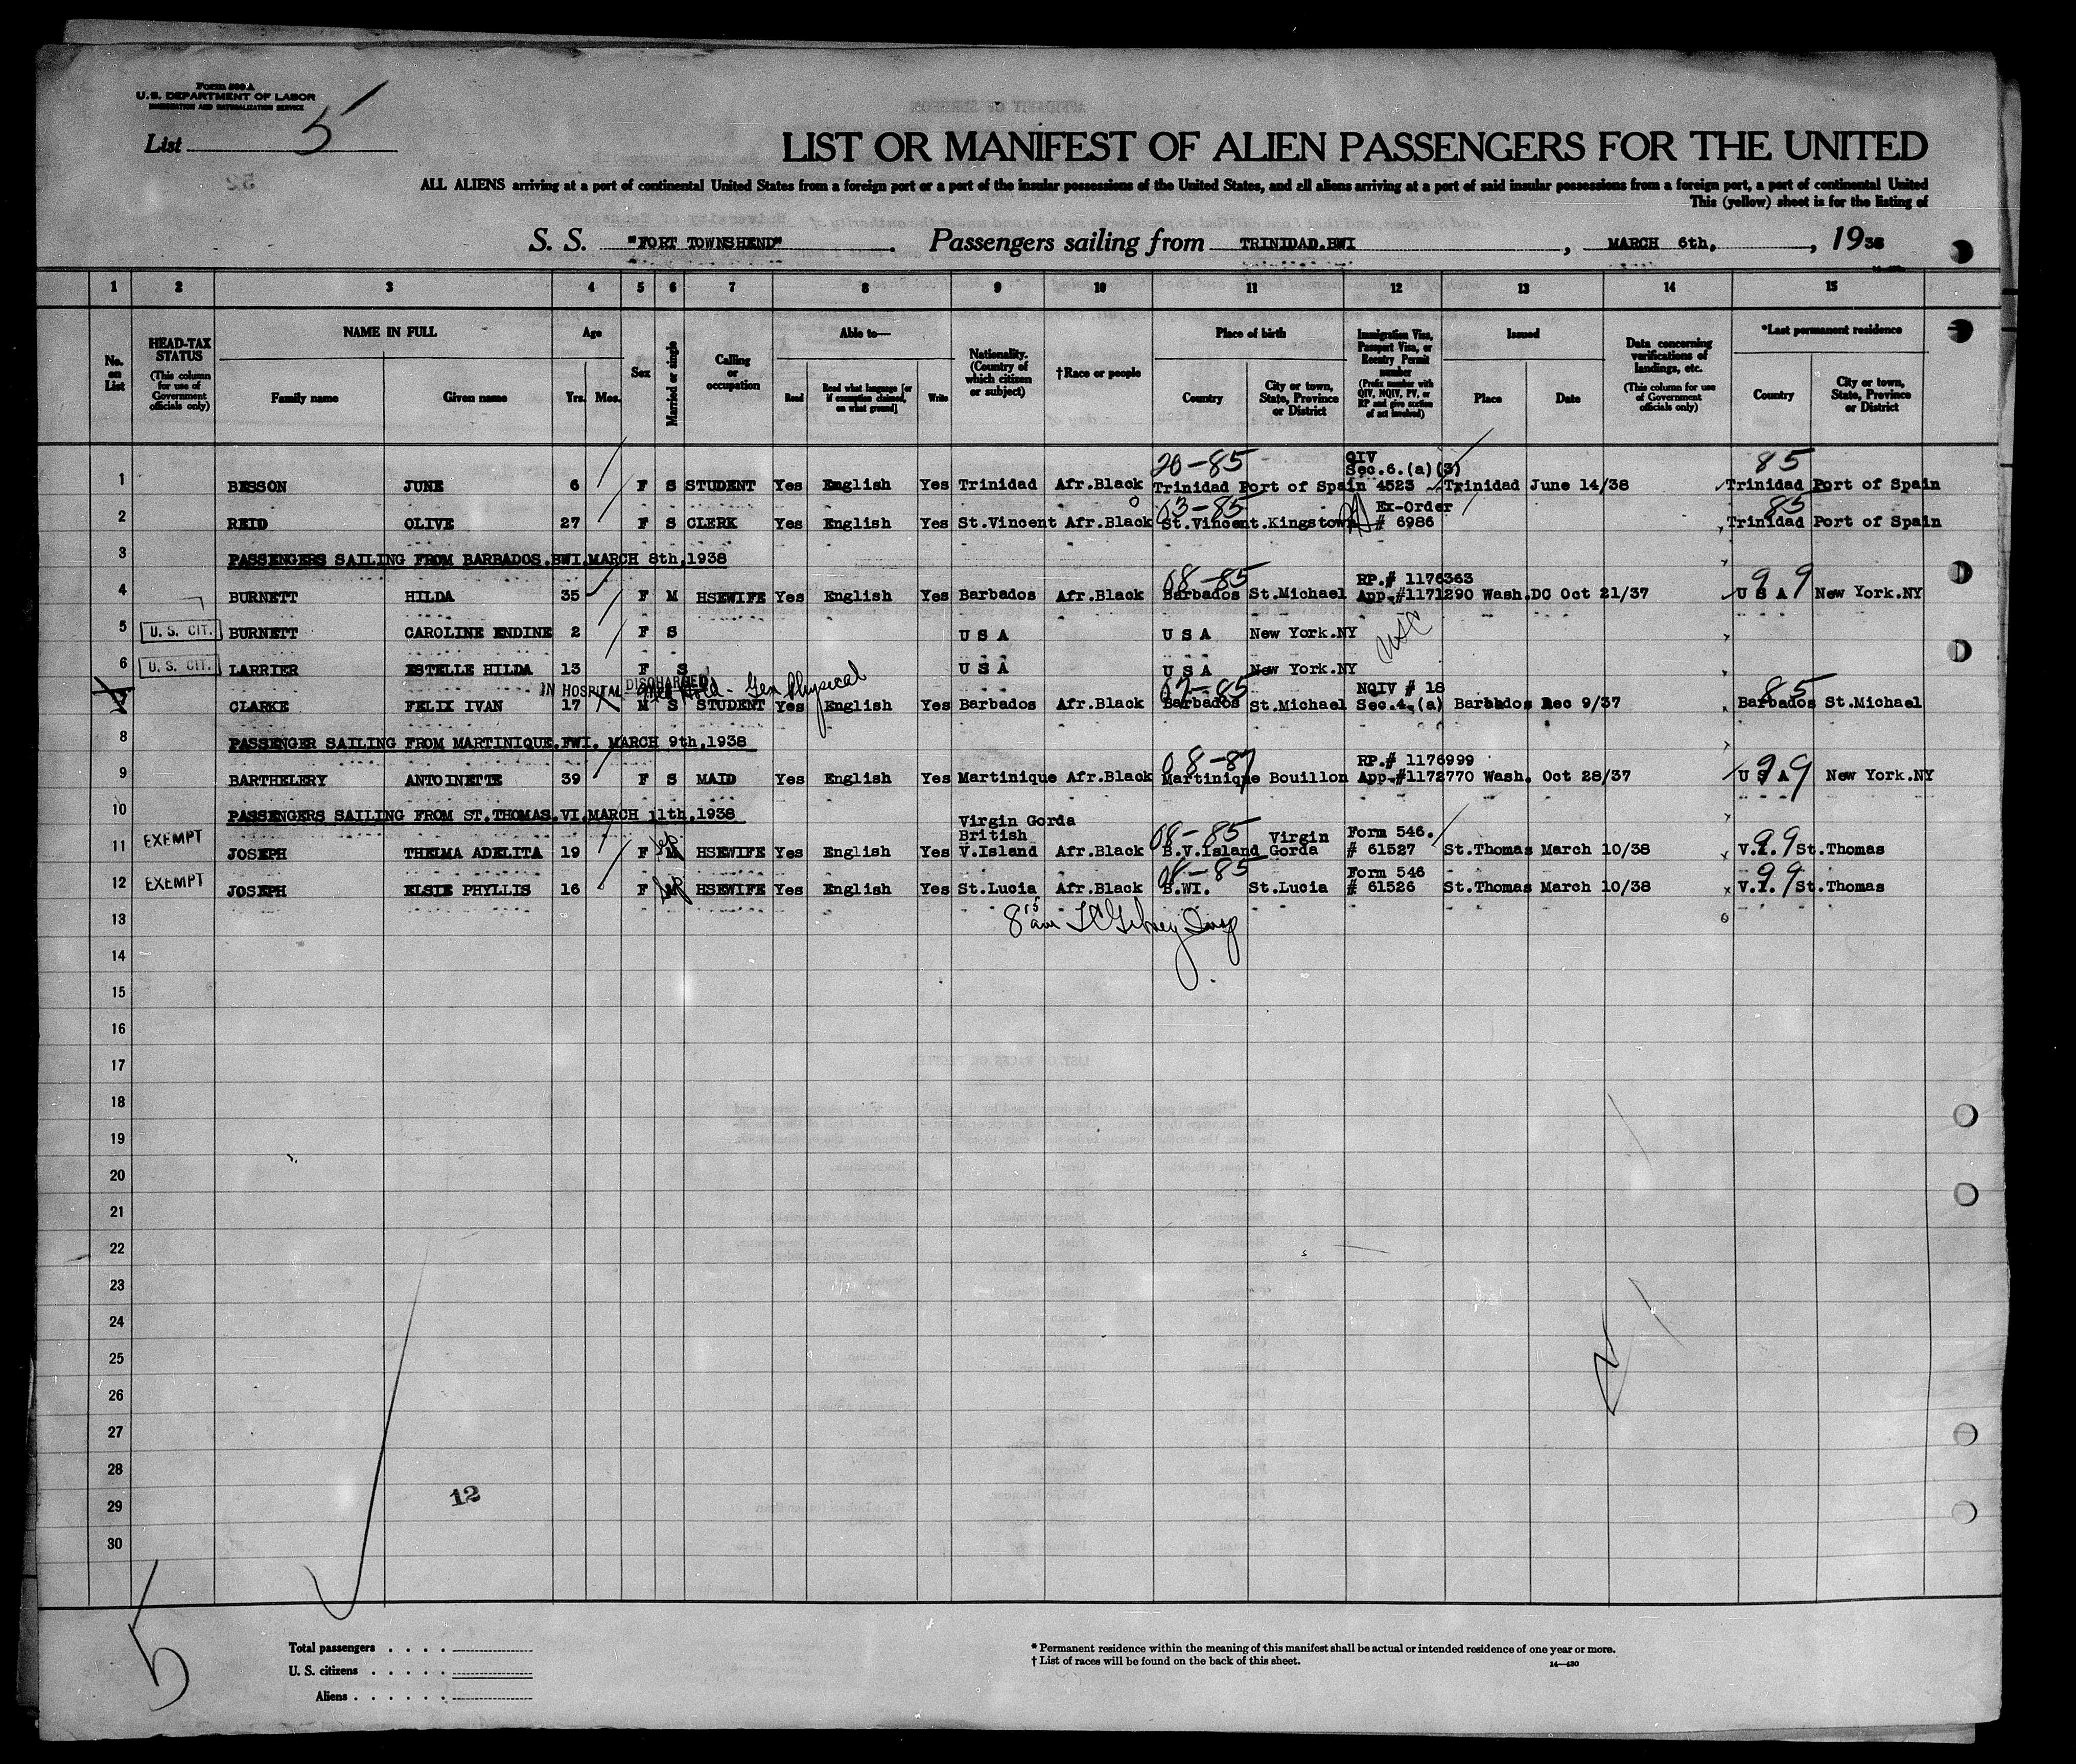 Form 500 A
U.S. DEPARTMENT OF LABOR
IMMIGRATION AND NATURALIZATION SERVICE
List 5
LIST OR MANIFEST OF ALIEN PASSENGERS FOR THE UNITED
ALL ALIENS arriving at a port of continental United States from a foreign port or a port of the insular possessions of the United States, and all aliens arriving at a port of said insular possessions from a foreign port, a port of continental United
This (yellow) sheet is for the listing of
S. S. "FORT TOWNSHEND". Passengers sailing from TRINIDAD.BWI, MARCH 6th, , 1938
1 2 3 4 5 6 7 8 9 10 11 12 13 14 15
No. on List
HEAD-TAX STATUS (This column for use of Government officials only)
NAME IN FULL Family name Given name
Age Yrs. Mos.
Sex
Married or single
Calling or occupation
Able to— Read Read what language [or if exemption claimed, on what ground] Write
Nationality. (Country of which citizen or subject)
†Race or people
Place of birth Country City or town, State, Province or District
Immigration Visa, Passport Visa, or Reentry Permit number (Prefix number with QIV, NQIV, PV, or RP and give section of act involved)
Issued Place Date
Data concerning verifications of landings, etc. (This column for use of Government officials only)
*Last permanent residence Country City or town, State, Province or District
20-85 QIV Sec.6.(a)(3) 85
1 BESSON JUNE 6 F S STUDENT Yes English Yes Trinidad Afr.Black Trinidad Port of Spain 4523 Trinidad June 14/38 Trinidad Port of Spain
03-85 Ex-Order 85
2 REID OLIVE 27 F S CLERK Yes English Yes St.Vincent Afr.Black St.Vincent.Kingstown # 6986 Trinidad Port of Spain
3 PASSENGERS SAILING FROM BARBADOS.BWI.MARCH 8th,1938
08-85 RP.# 1176363 99
4 BURNETT HILDA 35 F M HSEWIFE Yes English Yes Barbados Afr.Black Barbados St.Michael App.#1171290 Wash.DC Oct 21/37 U S A New York.NY
5 U. S. CIT. BURNETT CAROLINE ENDINE 2 F S U S A U S A New York.NY USC
6 U. S. CIT. LARRIER ESTELLE HILDA 13 F S U S A U S A New York.NY
IN HOSPITAL DISCHARGED Hold - Gen Physical 07-85 NQIV # 18 85
CLARKE FELIX IVAN 17 M S STUDENT Yes English Yes Barbados Afr.Black Barbados St.Michael Sec.4.(a) Barbados Dec 9/37 Barbados St.Michael
8 PASSENGER SAILING FROM MARTINIQUE.FWI. MARCH 9th,1938
08-87 RP.# 1176999 99
9 BARTHELERY ANTOINETTE 39 F S MAID Yes English Yes Martinique Afr.Black Martinique Bouillon App.#1172770 Wash. Oct 28/37 U S A New York.NY
10 PASSENGERS SAILING FROM ST.THOMAS.VI.MARCH 11th,1938
Virgin Gorda
EXEMPT British 08-85 Virgin Form 546. 99
11 JOSEPH THELMA ADELITA 19 F M HSEWIFE Yes English Yes V.Island Afr.Black B.V.Island Gorda # 61527 St.Thomas March 10/38 V.I. St.Thomas
EXEMPT 08-85 Form 546 99
12 JOSEPH ELSIE PHYLLIS 16 F M HSEWIFE Yes English Yes St.Lucia Afr.Black B.WI. St.Lucia # 61526 St.Thomas March 10/38 V.I. St.Thomas
13 8 15 am Insp
14
15
16
17
18
19
20
21
22
23
24
25
26
27
28
29
30
12
5
Total passengers . . . .
U. S. citizens . . . . .
Aliens . . . . . .
* Permanent residence within the meaning of this manifest shall be actual or intended residence of one year or more.
† List of races will be found on the back of this sheet.
14—430